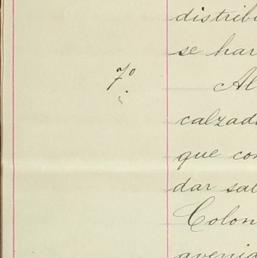 distribu
se har
7º
Al
calzad
que con
dar sal
Colon
avenid